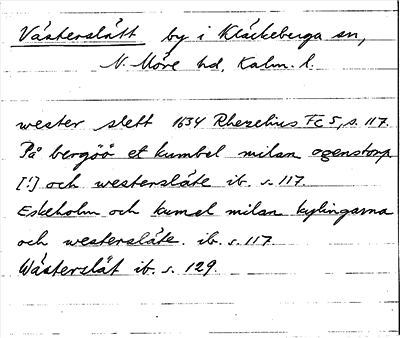 Västerslätt by i Kläckeberga sn,
N. Möre hd, Kalm. l.
wester slett 1634 Rhezelius Fc 5, s. 117.
På bergöö et kumbel milan ogenstorp
[!] och westerslåte ib. s. 117.
Eskeholm och kumel milan kyling­arna
och westerslåte. ib. s. 117
Wästerslät ib. s. 129.